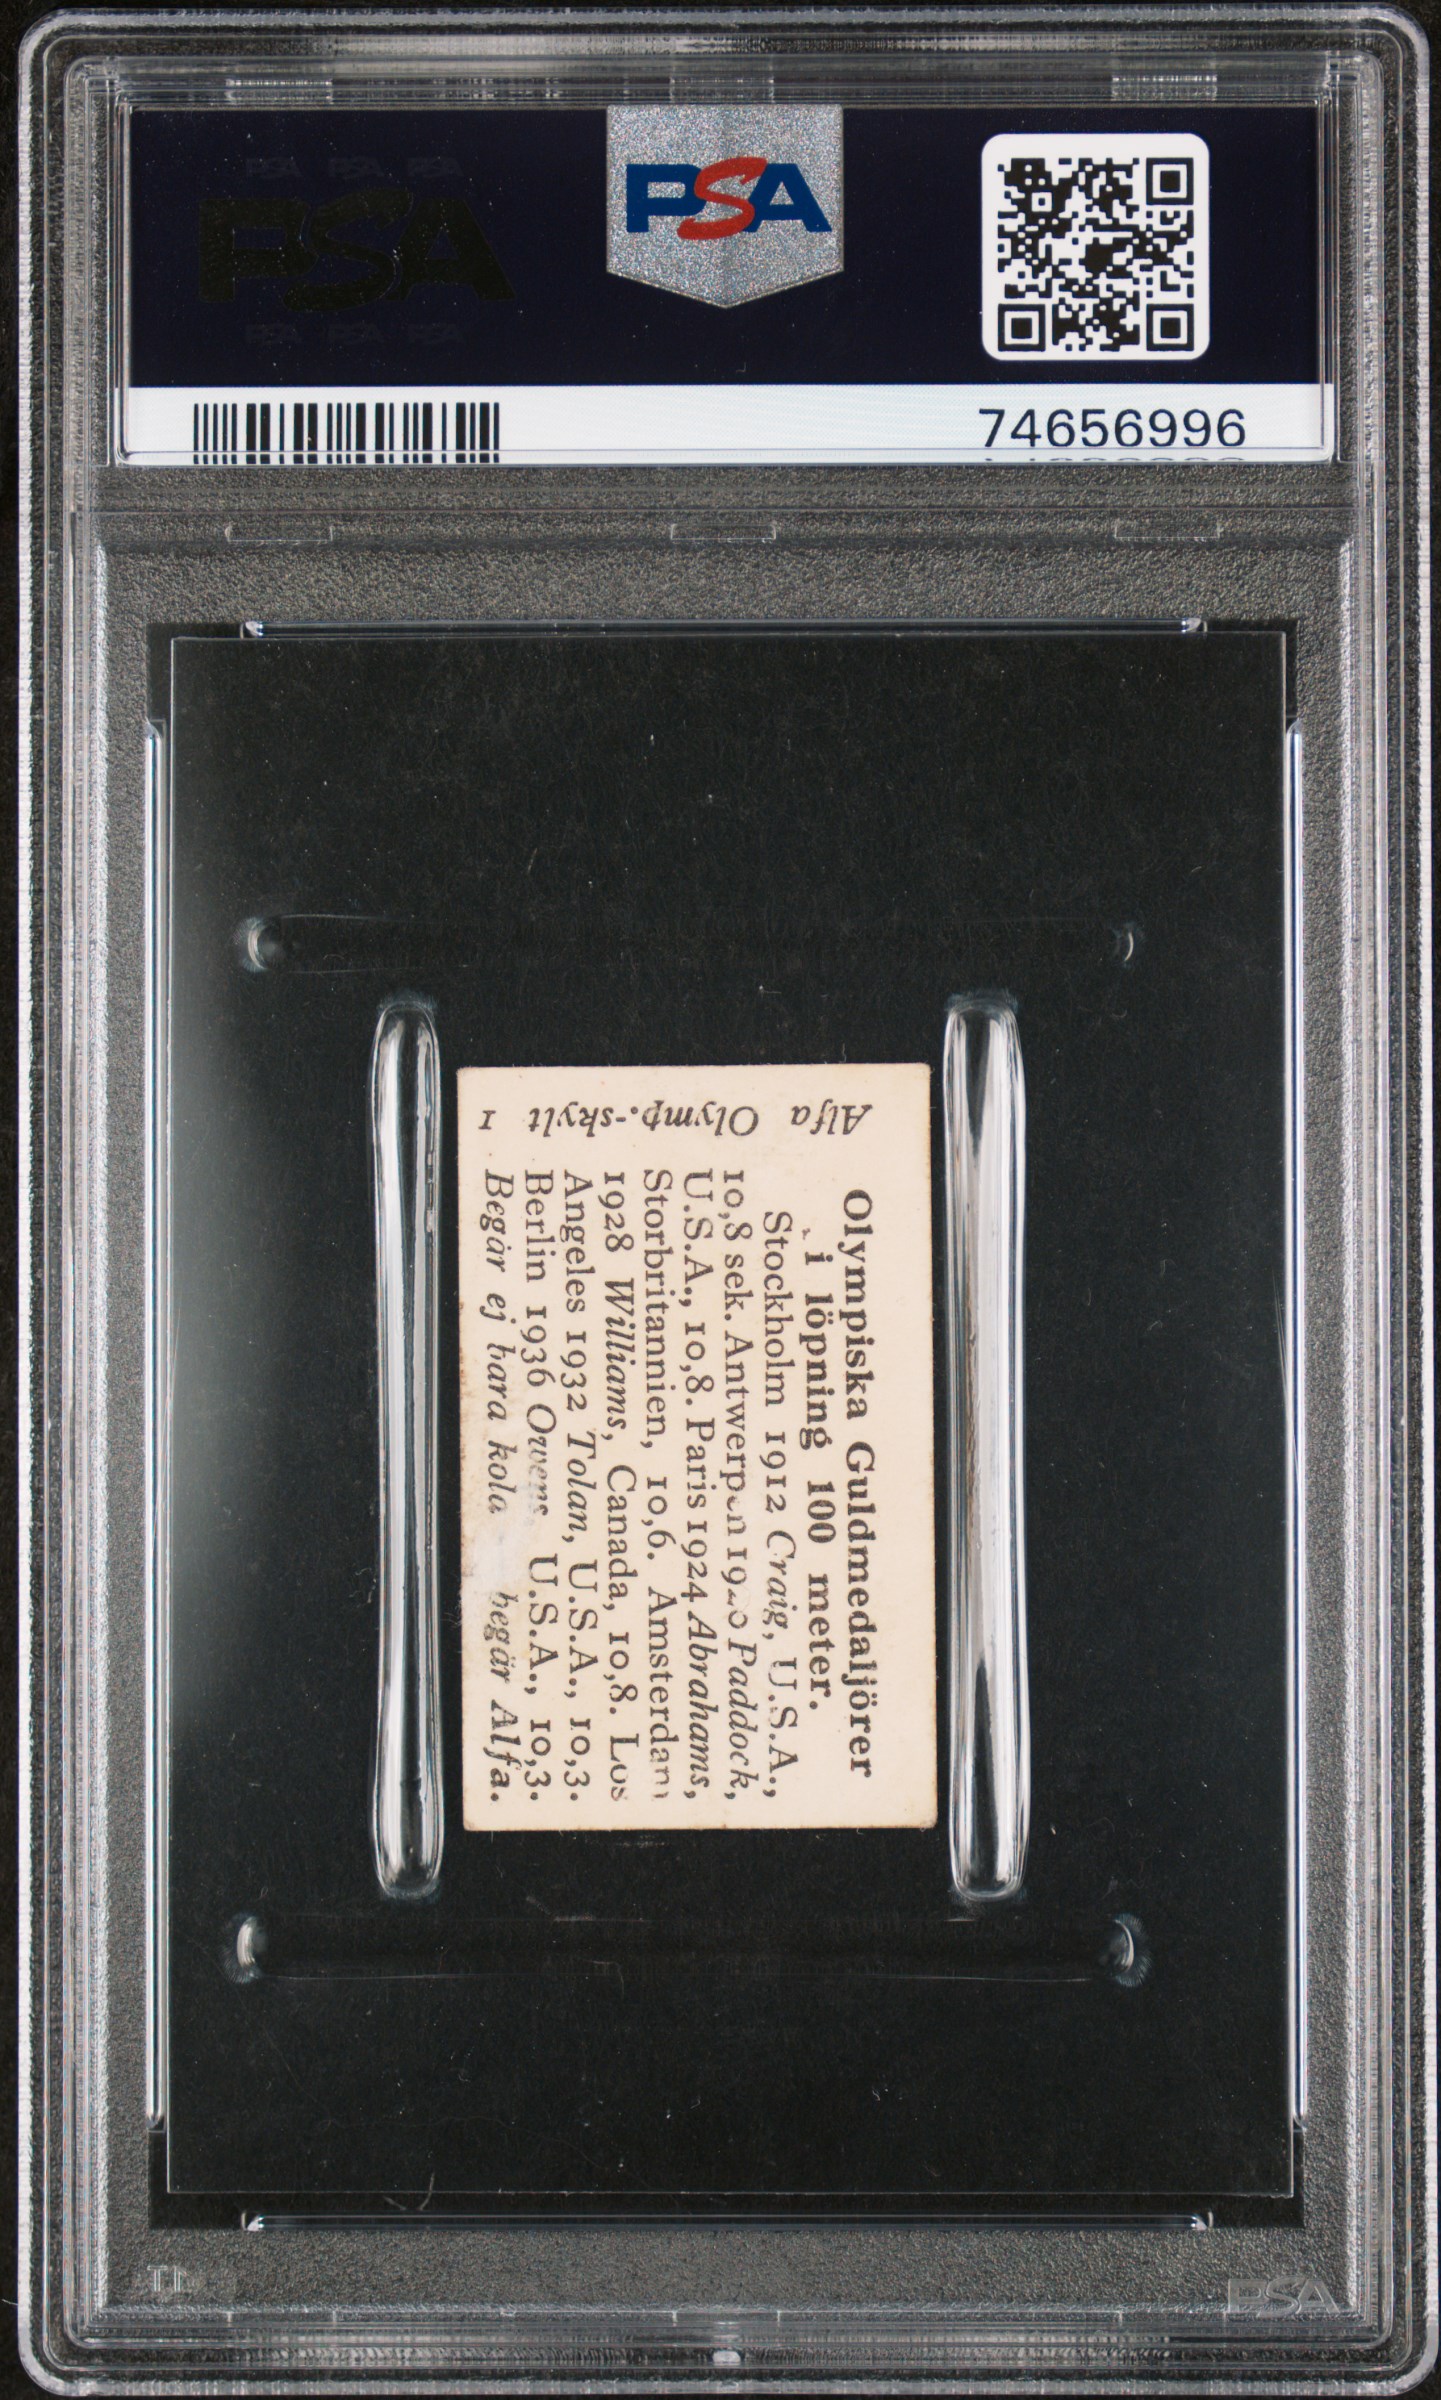 PSA PSA PSA
PSA
PSA PSA PSA
PSA
74656996
Alfa Olymp.-skylt 1
Olympiska Guldmedaljörer
i löpning 100 meter.
Stockholm 1912 Craig, U.S.A.,
10,8 sek. Antwerpen 1920 Paddock,
U.S.A., 10,8. Paris 1924 Abrahams,
Storbritannien, 10,6. Amsterdam
1928 Williams, Canada, 10,8. Los
Angeles 1932 Tolan, U.S.A., 10,3.
Berlin 1936 Owens U.S.A., 10,3.
Begär ej bara kola begär Alfa.
PSA